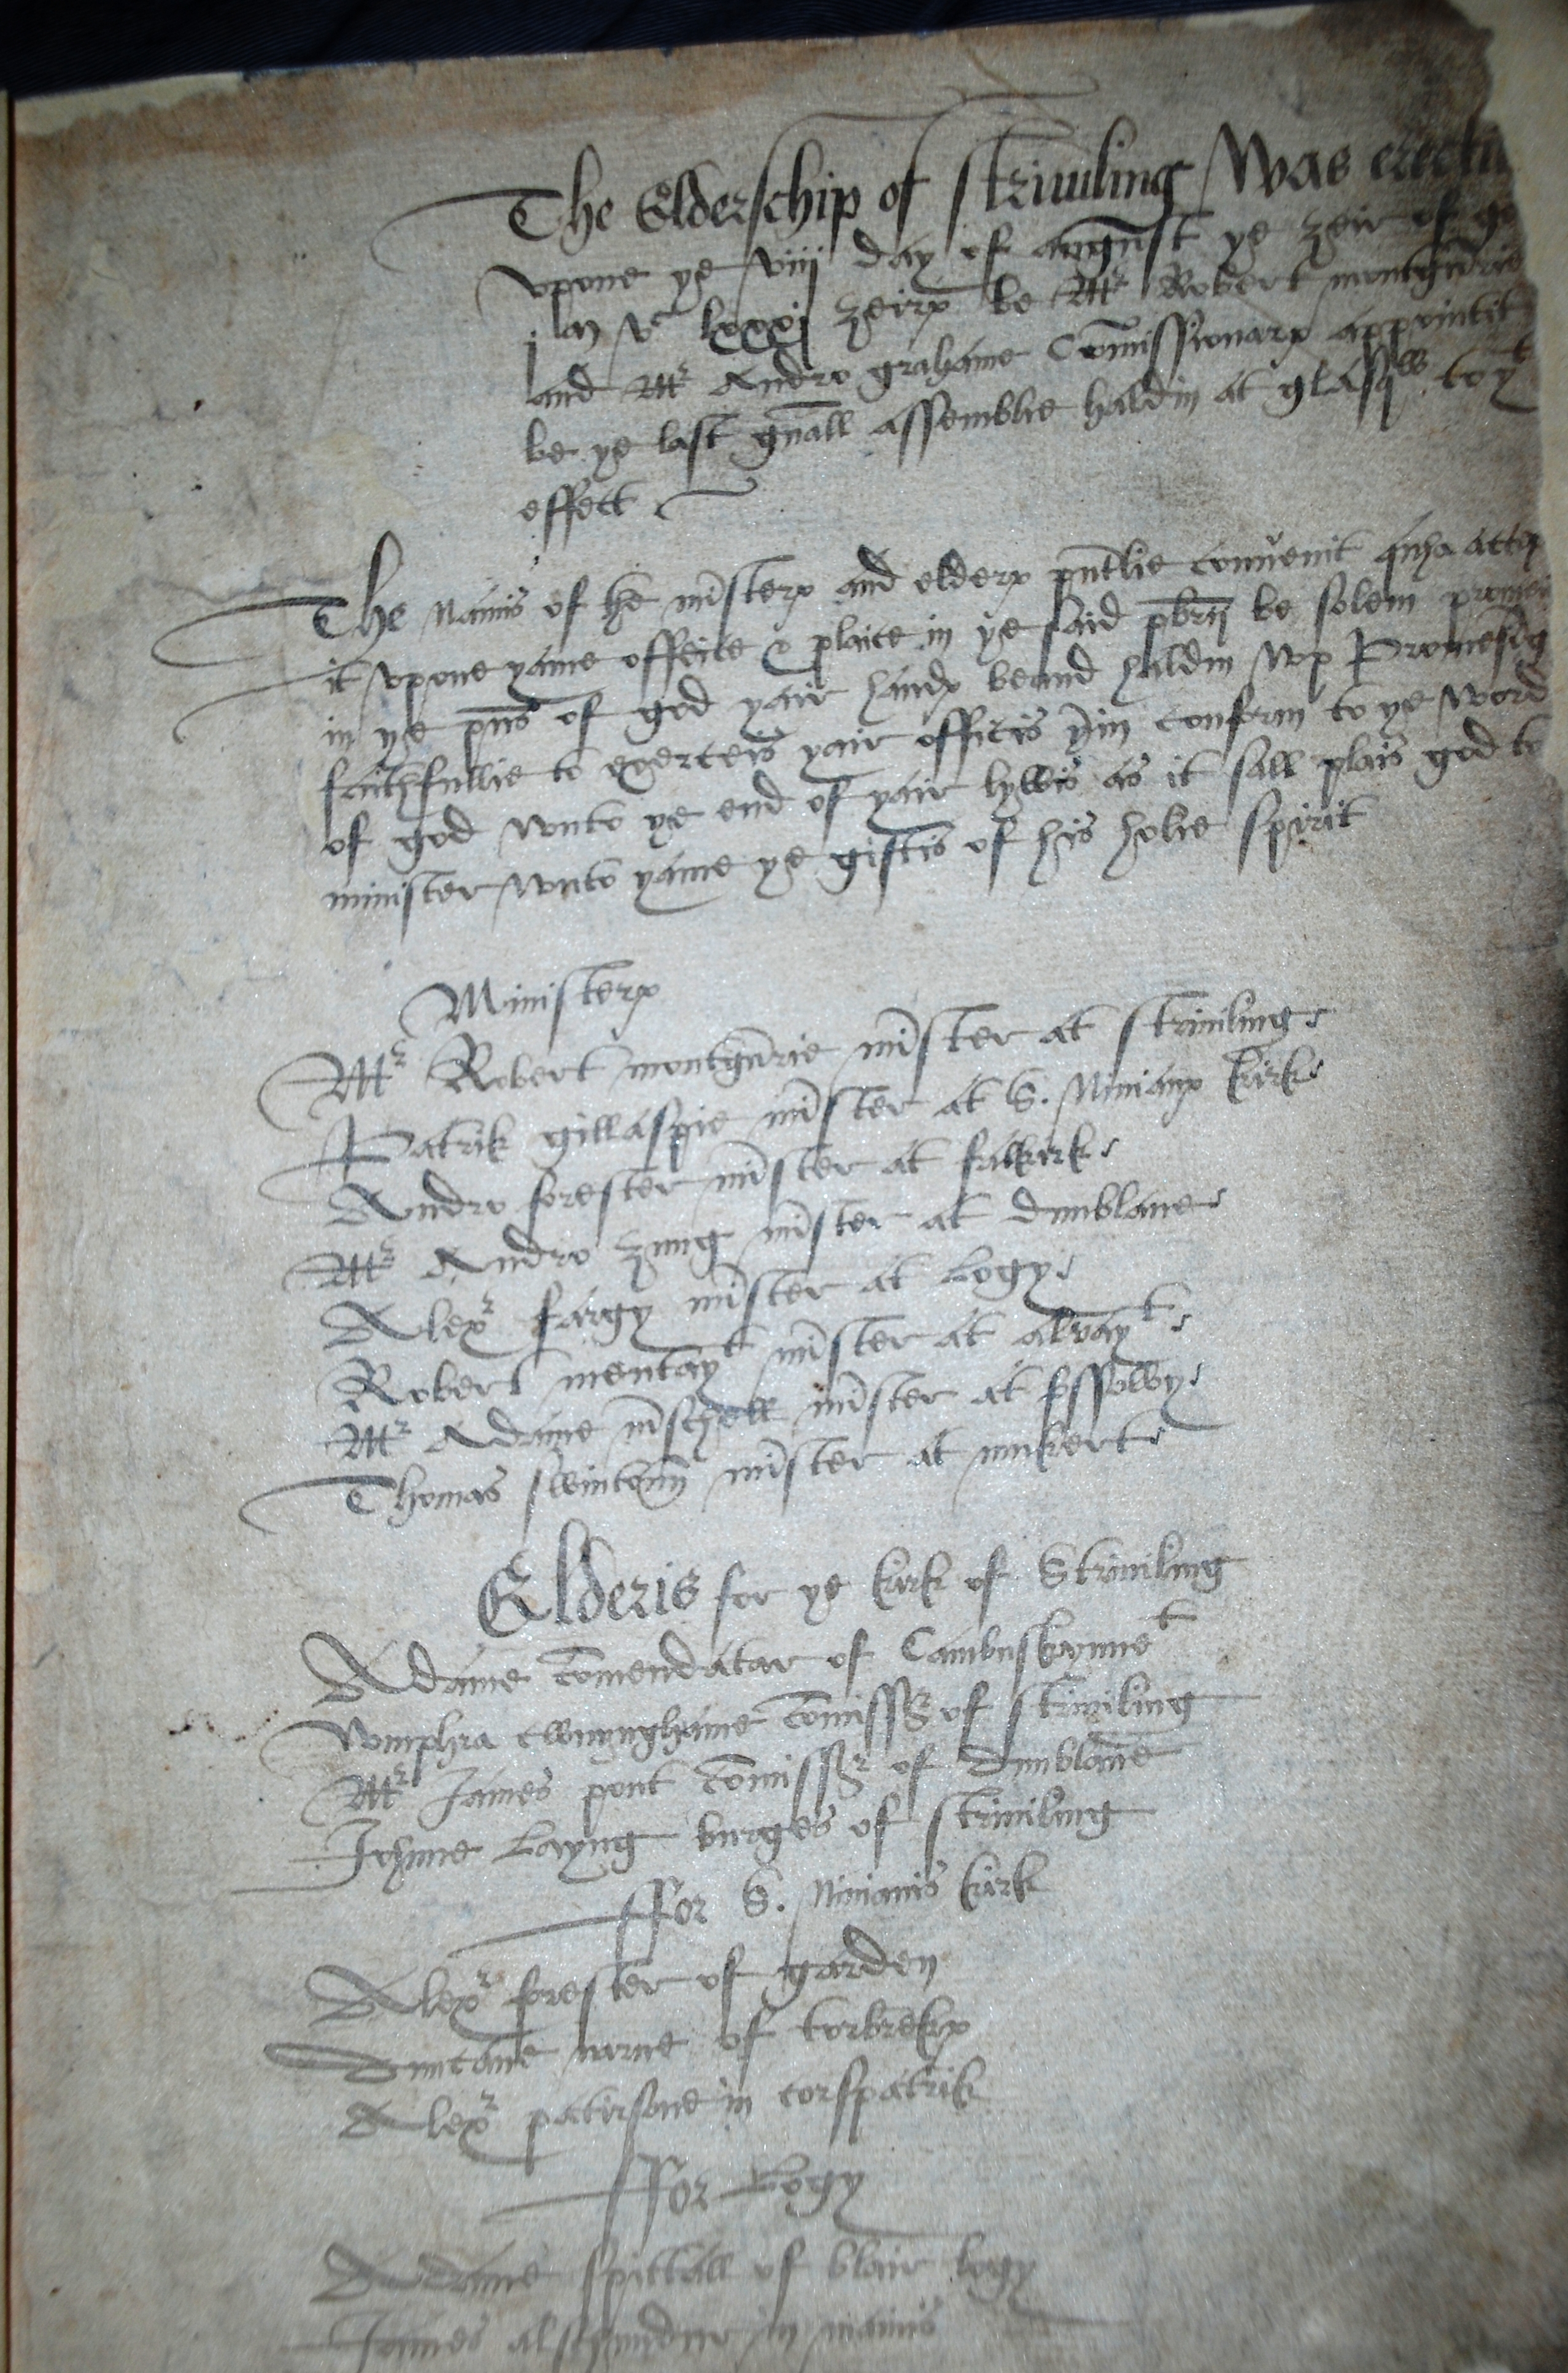 The Elderschip of striuiling Was erectit
vpone ye viij day of august ye zeir of go
j m vc lxxxj zeirs be Mr Robert montgu̅rie
and Mr Andro grahame Com̅issionars appointit
be ye last gn̅all assemblie haldin at glasqw to yt
effect
The Namis of the mi̅sters and elders pn̅tlie convenit quha accep
it vpone yame office & plaice in ye said pbr̅ij be solem promei
in ye pn̅s of god yair hands beand haldin wp Promesi̅g
faithfullie to exerceis yair officis yr̅in conform to ye word
of god wnto ye end of yair lywis as it sall plais god to
minister wnto yame ye giftis of his holie spirit
Ministers
Mr Robert montgu̅rie mi̅ster at striuiling
Patrik gillaspie mi̅ster at S. Ninians kirk
Andro forester mi̅ster at falkirk
Mr Andro zung mi̅ster at dunblane
Alexr fargy mi̅ster at Logy
Robert mentayt mi̅ster at alvayt
Mr Adame mi̅schell mi̅ster at fossowy
Thomas swintoun mi̅ster at mukert
Elderis for ye kirk of Striuiling
Adame com̅endatar of Cambuskynnet
vmphra cwnynghame com̅issr of striuiling
Mr James pont com̅issr of dunblane
Jhone Layng burges of striuiling
ffor S. Ninianis kirk
Alexr forester of garden
Duncane narne of torbreks
Alexr patirsone in corspatrik
ffor Logy
Adame spittall of blair logy
James alschunder in manis